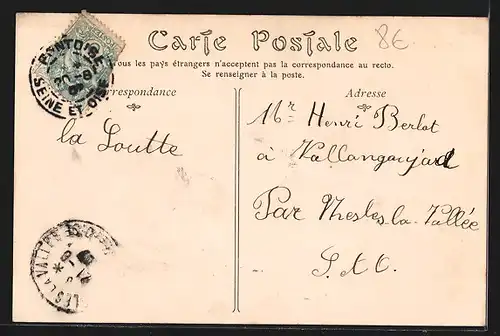 Carte Postale
8€
Tous les pays étrangers n'acceptent pas la correspondance au recto.
Se renseigner à la poste.
PONTOISE
SEINE ET OISE
Correspondance
Adresse
la Loutte
Mr Henri Berlot
à Vallangoujard
Par Nesles la Vallée
S. et O.
NESLES LA VALLÉE